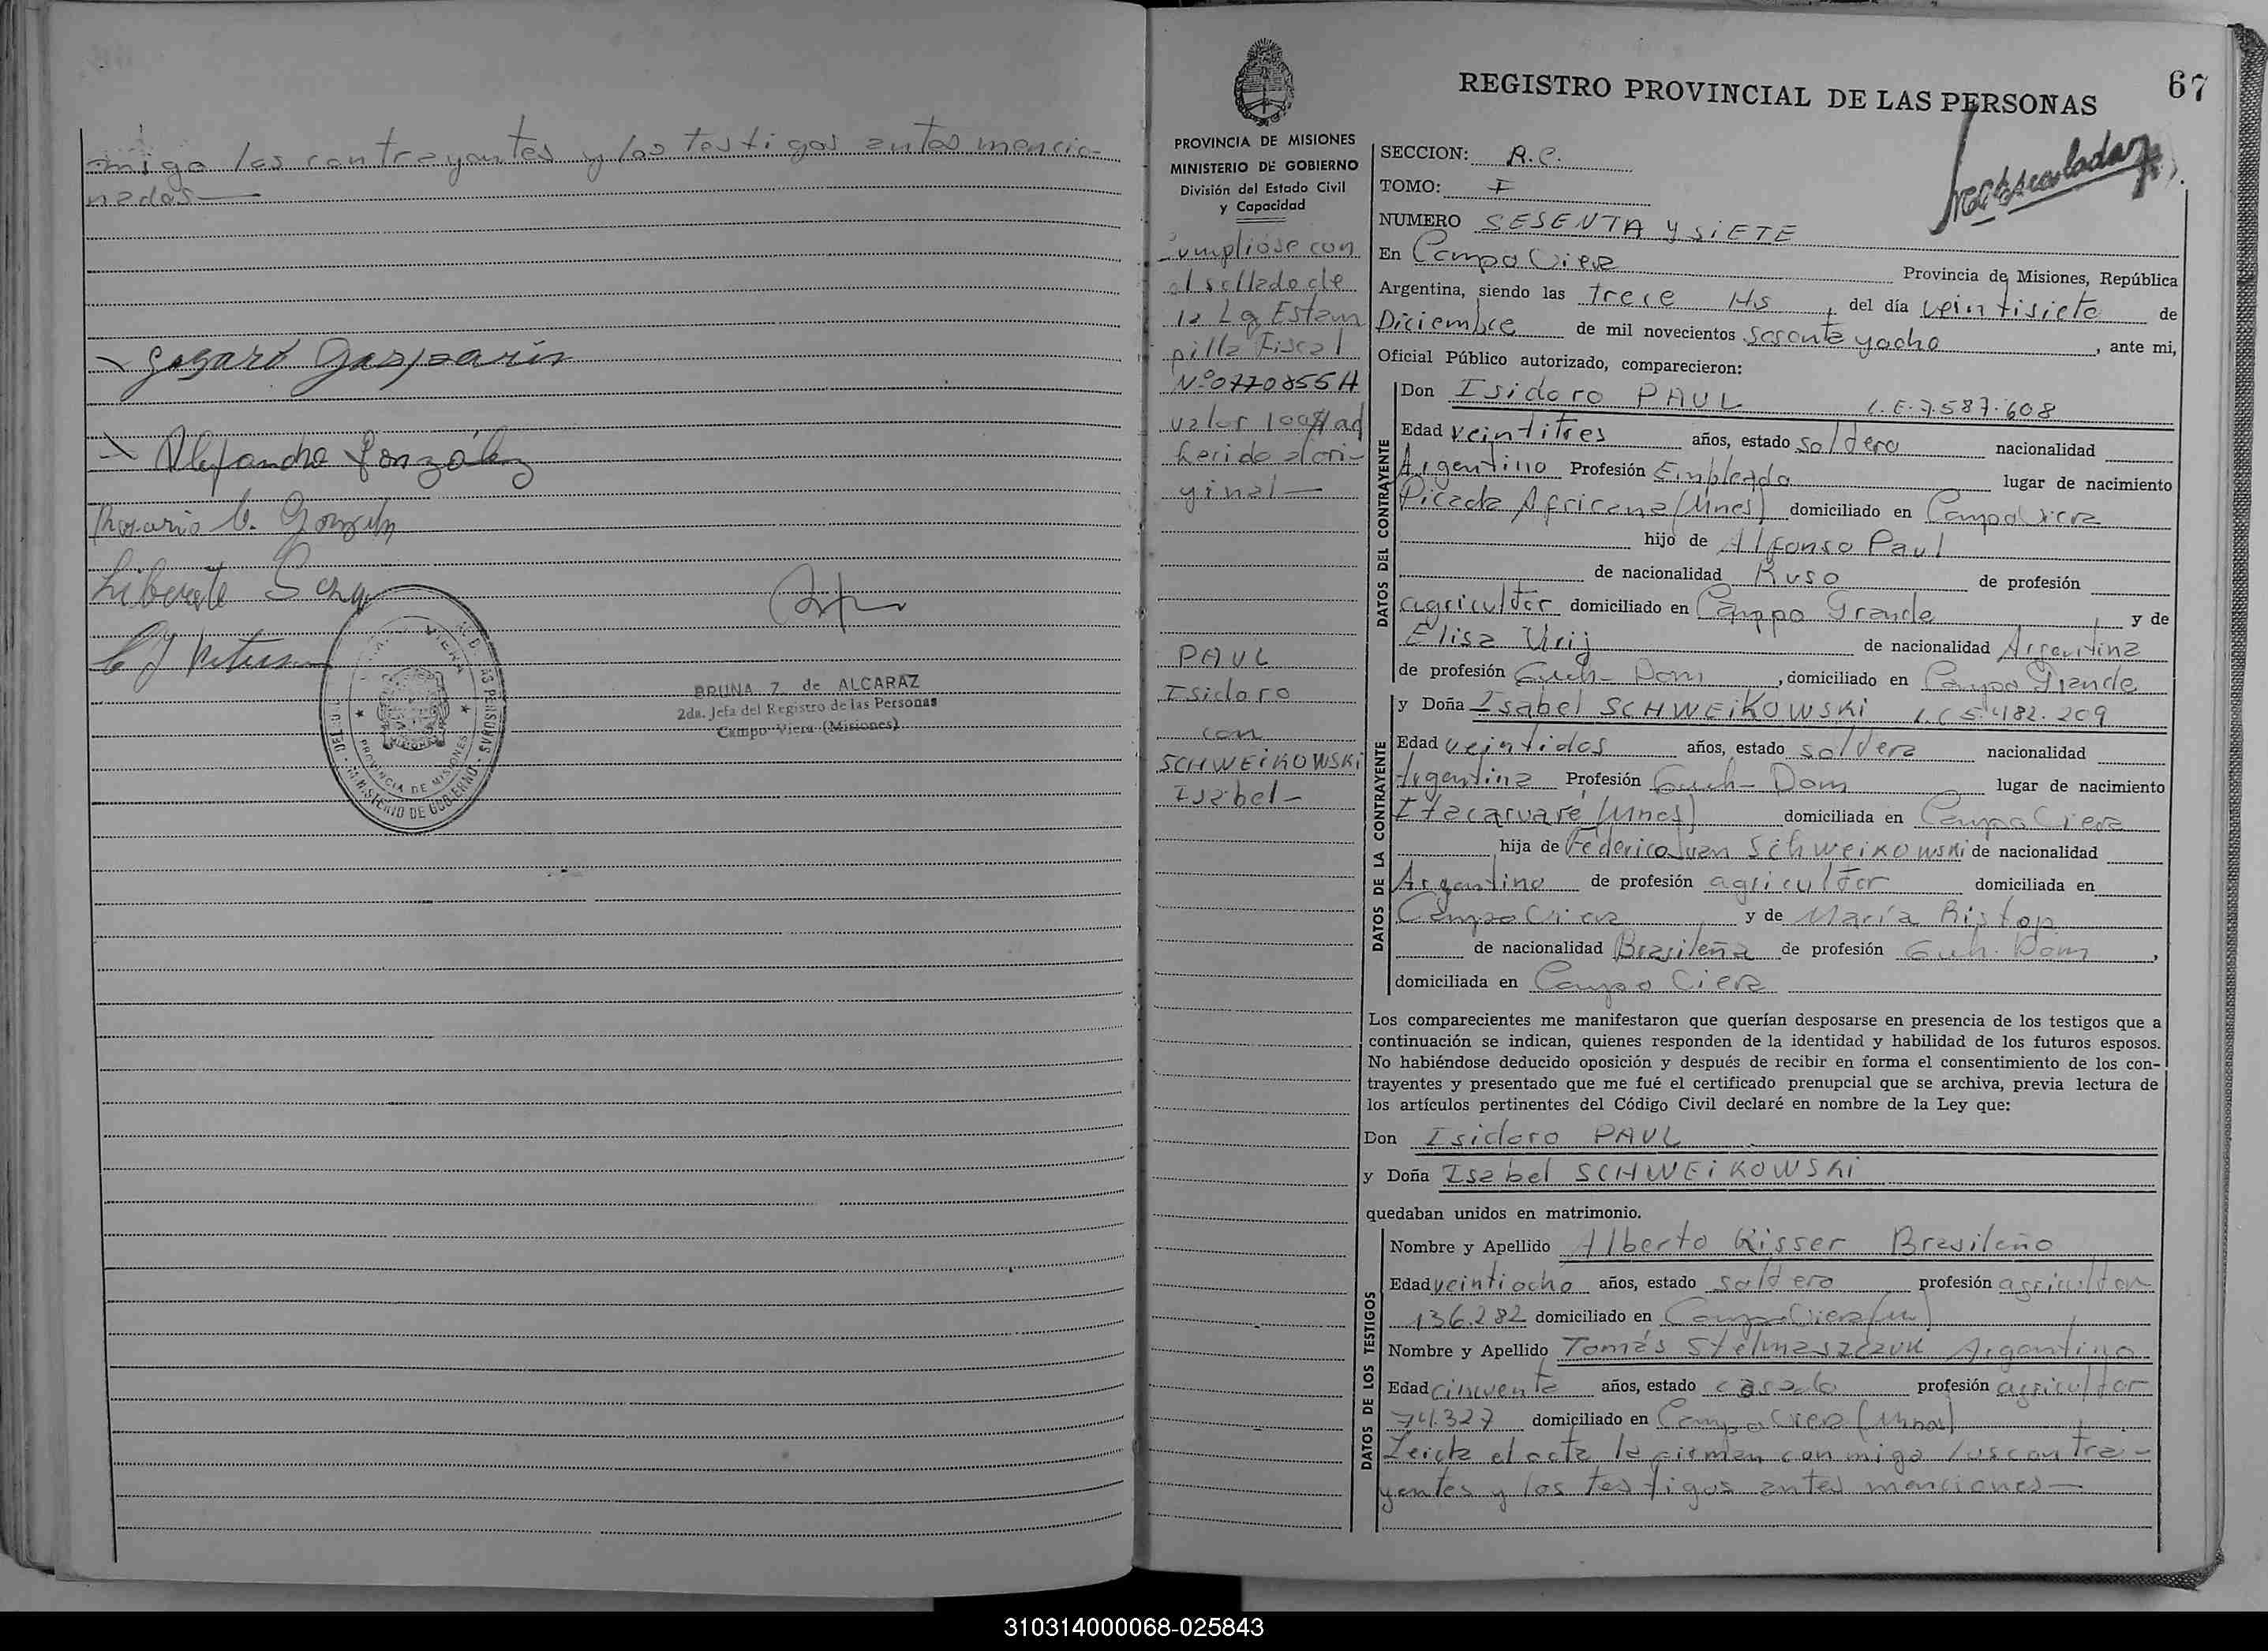 migo los contrayentes y los testigos antes mencio-
nados—
Alejandro González
BRUNA Z. de ALCARAZ
2da. Jefa del Registro de las Personas
Campo Viera (Misiones)
PROVINCIA DE MISIONES
MINISTERIO DE GOBIERNO
67
REGISTRO PROVINCIAL DE LAS PERSONAS
PROVINCIA DE MISIONES
MINISTERIO DE GOBIERNO
División del Estado Civil
y Capacidad
Cumpliose con
el sellado de
la Ley Estam
pilla Fiscal
Nº 0770855 H
valor 100$ ad
herido al ori-
ginal—
PAUL
Isidoro
con
SCHWEIKOWSKI
Isabel-
SECCION: R.C.
TOMO: I
NUMERO SESENTA y SIETE
En Campo Viera Provincia de Misiones, República
Argentina, siendo las trece Hs, del día veintisiete de
Diciembre de mil novecientos sesenta y ocho, ante mi,
Oficial Público autorizado, comparecieron:
DATOS DEL CONTRAYENTE
Don Isidoro PAUL L.E. 7.587.608
Edad veintitres años, estado soltero nacionalidad
Argentino Profesión Empleado lugar de nacimiento
Picada Africana (Mnes) domiciliado en Campo Viera
hijo de Alfonso Paul
de nacionalidad Ruso de profesión
agricultor domiciliado en Campo Grande y de
Elisa de nacionalidad Argentina
de profesión Queh- Dom, domiciliado en Campo Grande
DATOS DE LA CONTRAYENTE
y Doña Isabel SCHWEIKOWSKI L.C 5.482.209
Edad veintidos años, estado soltera nacionalidad
Argentina Profesión Queh- Dom lugar de nacimiento
Itacaruaré (Mnes) domiciliada en Campo Viera
hija de Federico Juan Schweikowski de nacionalidad
Argentino de profesión agricultor domiciliada en
Campo Viera y de María Ristop
de nacionalidad Brasileña de profesión Queh. Dom,
domiciliada en Campo Viera
Los comparecientes me manifestaron que querían desposarse en presencia de los testigos que a
continuación se indican, quienes responden de la identidad y habilidad de los futuros esposos.
No habiéndose deducido oposición y después de recibir en forma el consentimiento de los con-
trayentes y presentado que me fué el certificado prenupcial que se archiva, previa lectura de
los artículos pertinentes del Código Civil declaré en nombre de la Ley que:
Don Isidoro PAUL
y Doña Isabel SCHWEIKOWSKI
quedaban unidos en matrimonio.
DATOS DE LOS TESTIGOS
Nombre y Apellido Alberto Kisser Brasileño
Edad veintiocho años, estado soltero profesión agricultor
136.282 domiciliado en Campo Viera (Mn)
Nombre y Apellido Tomás Stelmaszczuk Argentino
Edad cincuenta años, estado casado profesión agricultor
74.327 domiciliado en Campo Viera (Mnes)
Leida el acta la firman conmigo los contra-
yentes y los testigos antes menciones—
310314000068-025843